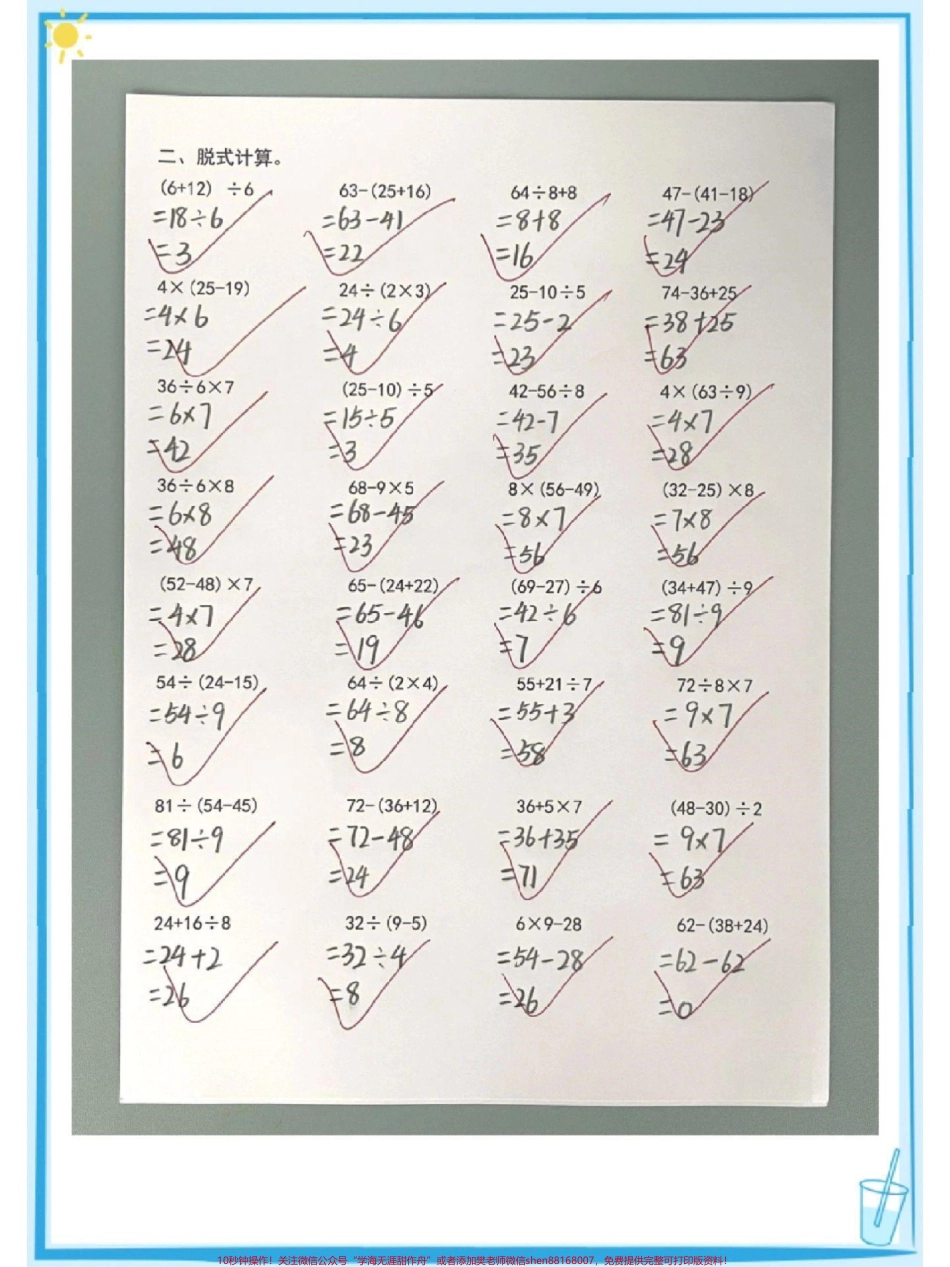 二、脱式计算。
(6+12) ÷6 63-(25+16) 64÷8+8 47-(41-18)
=18÷6 =63-41 =8+8 =47-23
=3 =22 =16 =24
4×(25-19) 24÷(2×3) 25-10÷5 74-36+25
=4×6 =24÷6 =25-2 =38+25
=24 =4 =23 =63
36÷6×7 (25-10)÷5 42-56÷8 4×(63÷9)
=6×7 =15÷5 =42-7 =4×7
=42 =3 =35 =28
36÷6×8 68-9×5 8×(56-49) (32-25)×8
=6×8 =68-45 =8×7 =7×8
=48 =23 =56 =56
(52-48)×7 65-(24+22) (69-27)÷6 (34+47)÷9
=4×7 =65-46 =42÷6 =81÷9
=28 =19 =7 =9
54÷(24-15) 64÷(2×4) 55+21÷7 72÷8×7
=54÷9 =64÷8 =55+3 =9×7
=6 =8 =58 =63
81÷(54-45) 72-(36+12) 36+5×7 (48-30)÷2
=81÷9 =72-48 =36+35 =9×7
=9 =24 =71 =63
24+16÷8 32÷(9-5) 6×9-28 62-(38+24)
=24+2 =32÷4 =54-28 =62-62
=26 =8 =26 =0
10秒钟操作！关注微信公众号“学海无涯甜作舟”或者添加樊老师微信shen88168007，免费提供完整可打印版资料！